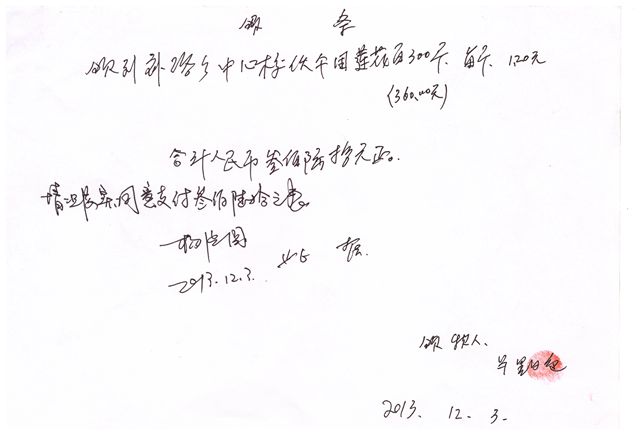 领 条
领到 乡中心校伙食用莲花白300斤.每斤.1.20元
(360.00元)
合计人民币叁佰陆拾元正。
情况属实,同意支付叁佰陆拾元。
2013.12.3. 此 据.
领款人.
2013. 12. 3.